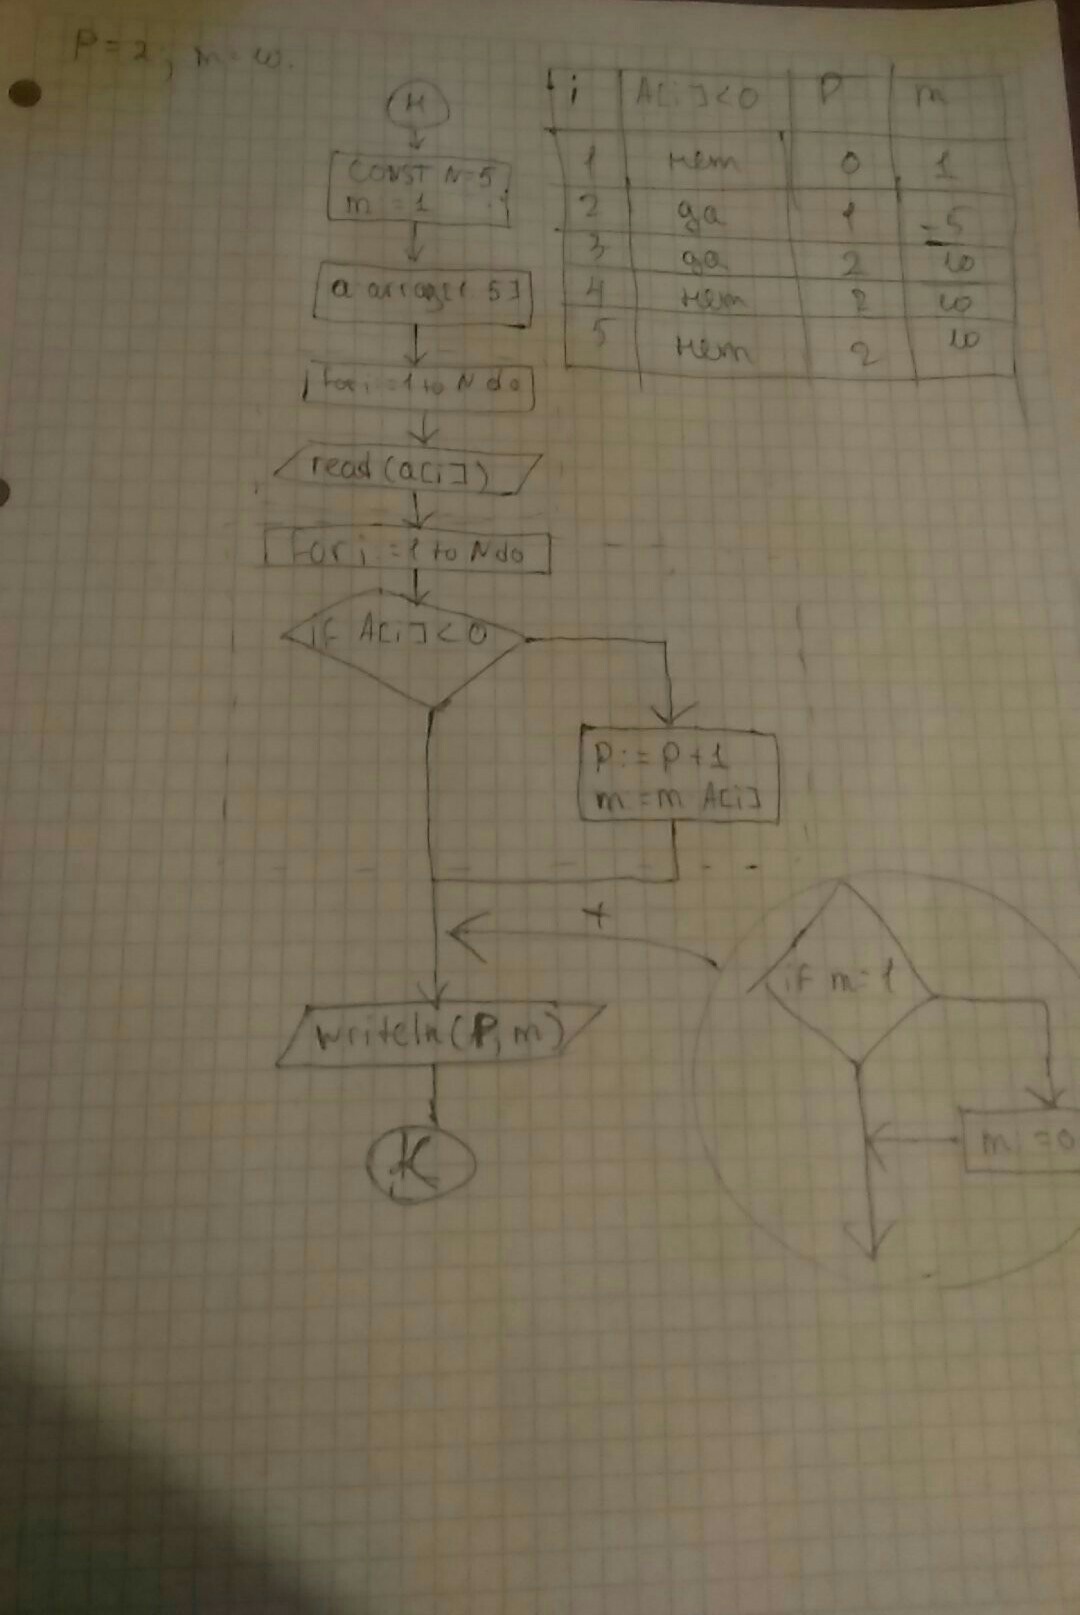 P=2, m=10.
н
CONST N=5
m=1
a array[1 5]
for i=1 to N do
read(a[i])
for i=1 to N do
if A[i]<0
P:=P+1
m=m A[i]
+
if m=1
m=0
writeln(P,m)
К
i A[i]<0 P m
1 нет 0 1
2 да 1 -5
3 да 2 10
4 нет 2 10
5 нет 2 10